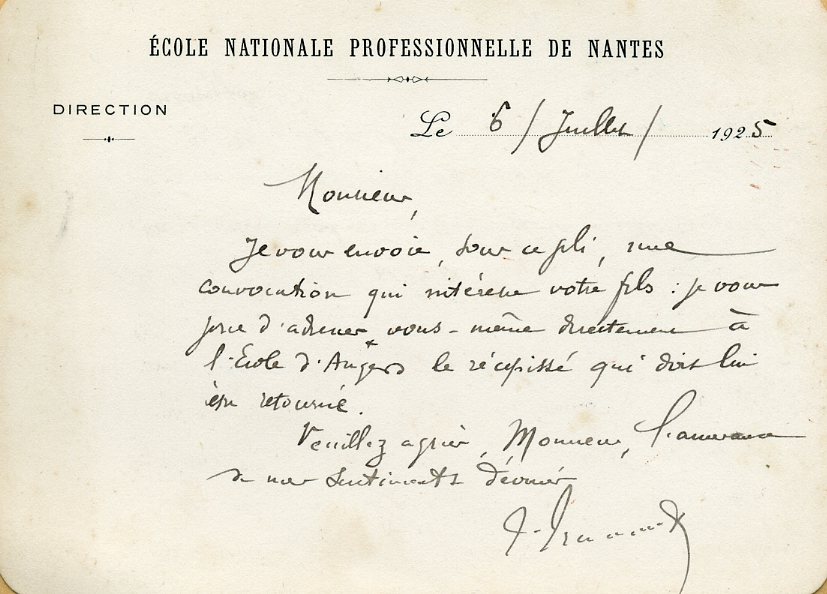 ÉCOLE NATIONALE PROFESSIONNELLE DE NANTES
DIRECTION
Le 6 / Juillet / 1925
Monsieur,
Je vous envoie, sous ce pli, une
convocation qui intéresse votre fils : je vous
prie d'adresser vous-même directement à
l'Ecole d'Angers le récépissé qui doit lui
être retourné.
Veuillez agréer, Monsieur, l'assurance
de mes sentiments dévoués